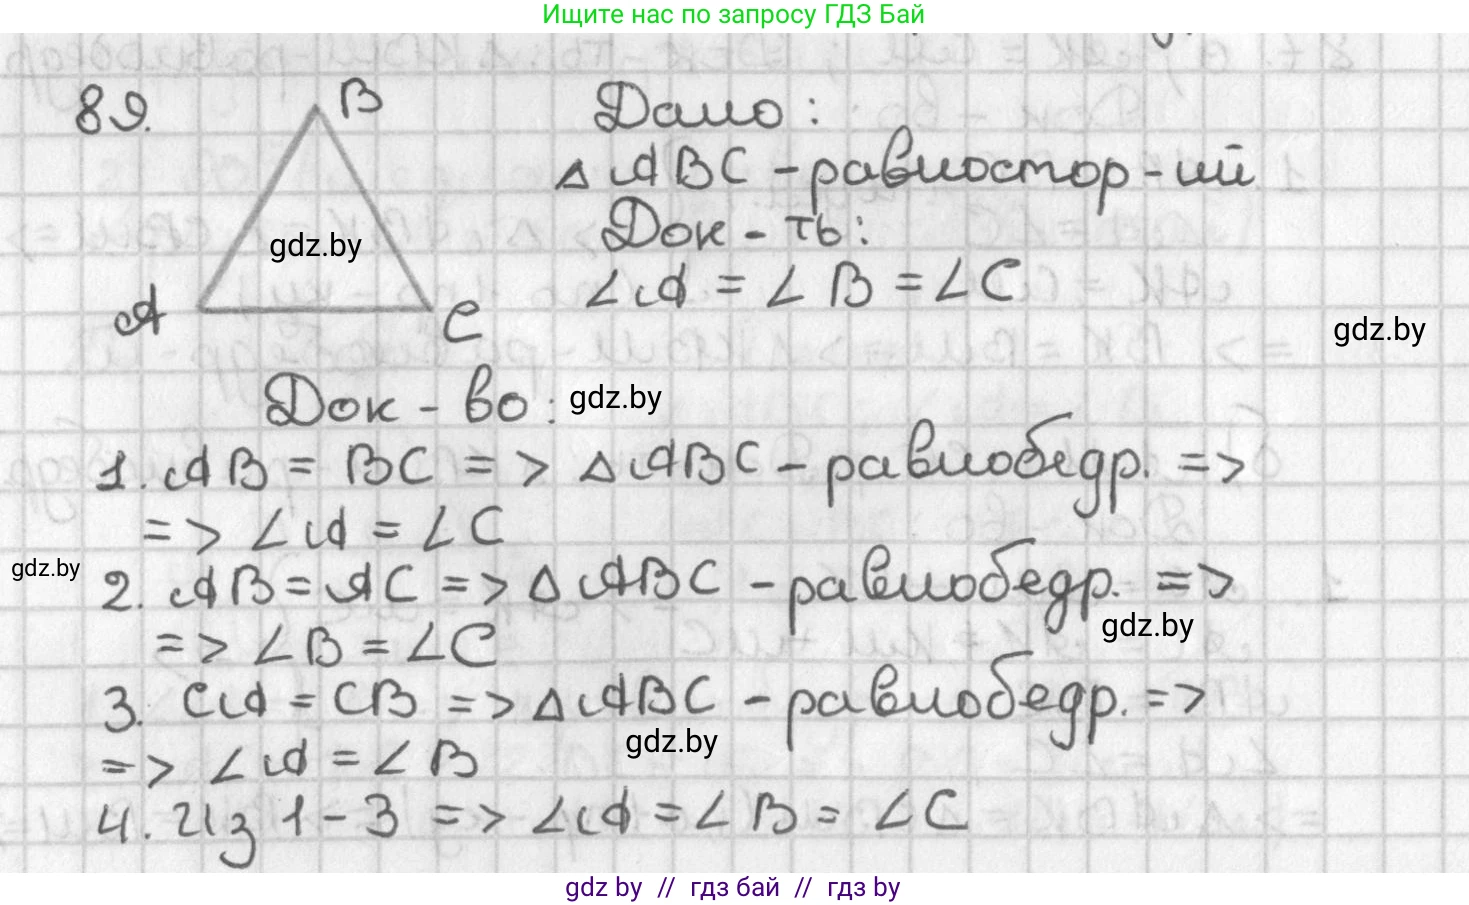 Ищите нас по запросу ГДЗ Бай
89.
B
Дано:
△ABC - равностор-ий
Док-ть:
gdz.by
∠A = ∠B = ∠C
A
C
gdz.by
Док-во:
gdz.by
1. AB = BC => △ABC - равнобедр. =>
=> ∠A = ∠C
gdz.by
2. AB = AC => △ABC - равнобедр. =>
gdz.by
=> ∠B = ∠C
3. CA = CB => △ABC - равнобедр. =>
gdz.by
=> ∠A = ∠B
4. Из 1-3 => ∠A = ∠B = ∠C
gdz by // gdz бай // гдз by